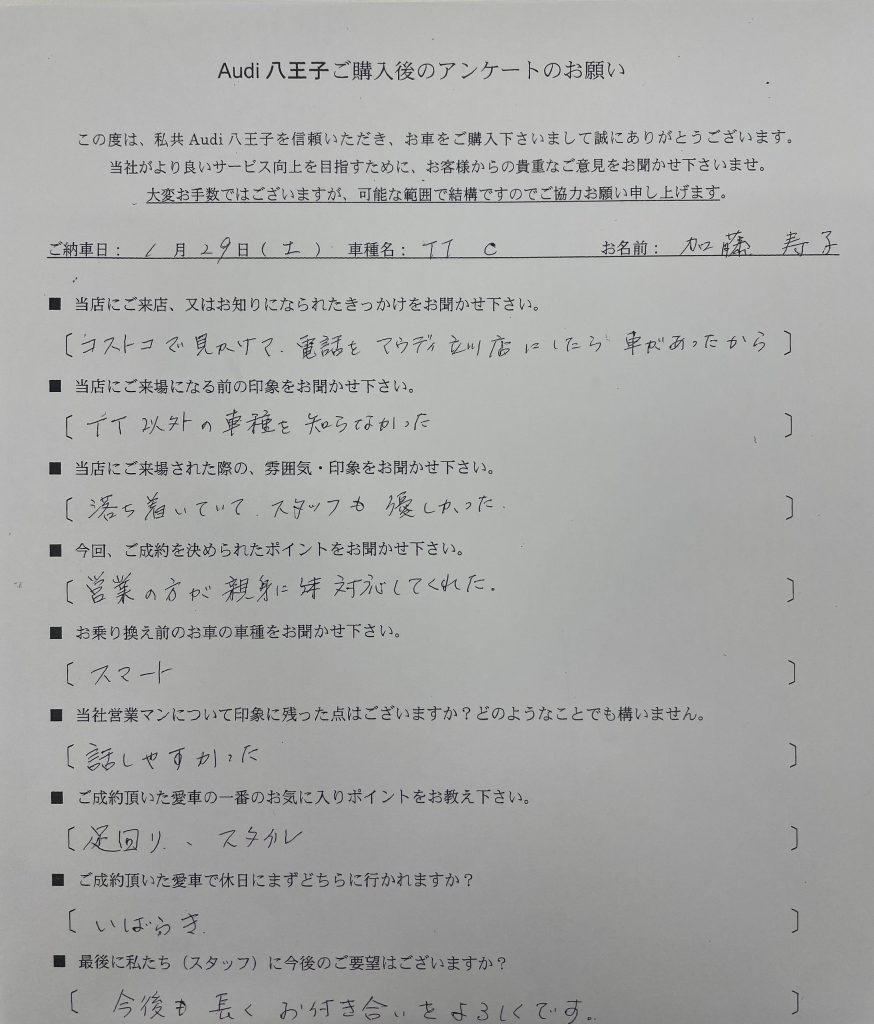 Audi 八王子ご購入後のアンケートのお願い
この度は、私共 Audi 八王子を信頼いただき、お車をご購入下さいまして誠にありがとうございます。
当社がより良いサービス向上を目指すために、お客様からの貴重なご意見をお聞かせ下さいませ。
大変お手数ではございますが、可能な範囲で結構ですのでご協力お願い申し上げます。
ご納車日： 1 月 29 日（ 土 ） 車種名： TT C お名前： 加藤 寿子
■ 当店にご来店、又はお知りになられたきっかけをお聞かせ下さい。
〔コストコで見かけて、電話を アウディ立川店にしたら 車があったから〕
■ 当店にご来場になる前の印象をお聞かせ下さい。
〔TT以外の車種を知らなかった〕
■ 当店にご来場された際の、雰囲気・印象をお聞かせ下さい。
〔落ち着いていて、スタッフも優しかった.〕
■ 今回、ご成約を決められたポイントをお聞かせ下さい。
〔営業の方が親身に 対応してくれた.〕
■ お乗り換え前のお車の車種をお聞かせ下さい。
〔スマート〕
■ 当社営業マンについて印象に残った点はございますか？どのようなことでも構いません。
〔話しやすかった〕
■ ご成約頂いた愛車の一番のお気に入りポイントをお教え下さい。
〔足回り、スタイル〕
■ ご成約頂いた愛車で休日にまずどちらに行かれますか？
〔いばらき.〕
■ 最後に私たち（スタッフ）に今後のご要望はございますか？
〔今後も長くお付き合いをよろしくです。〕